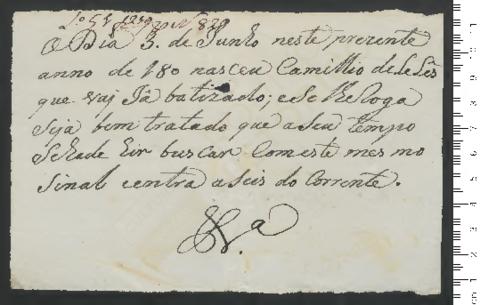 O Dia 3. de Junho neste prezente
anno de 180 nasceu Camillio de Leles
que vaj Jâ batizado; e se lhe Roga
Sija bem tratado que a seu tempo
Se hade hir buscar Com este mes mo
Sinal e entra a seis do Corrente.